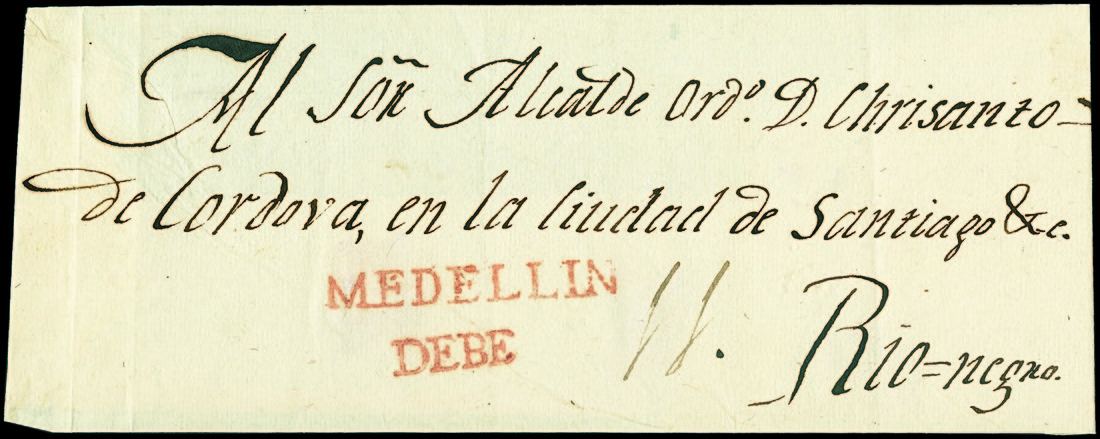 Al Sõr Alcalde Ordo. D. Chrisanto=
de Cordova, en la Ciudad de Santiago &c.
MEDELLIN
DEBE
11.
Rio=negro.